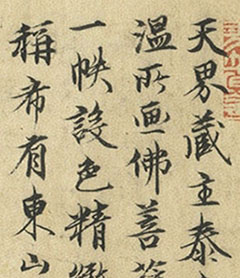 天界蔵主泰
温所画佛菩薩
一帙設色精緻
稱希有東山